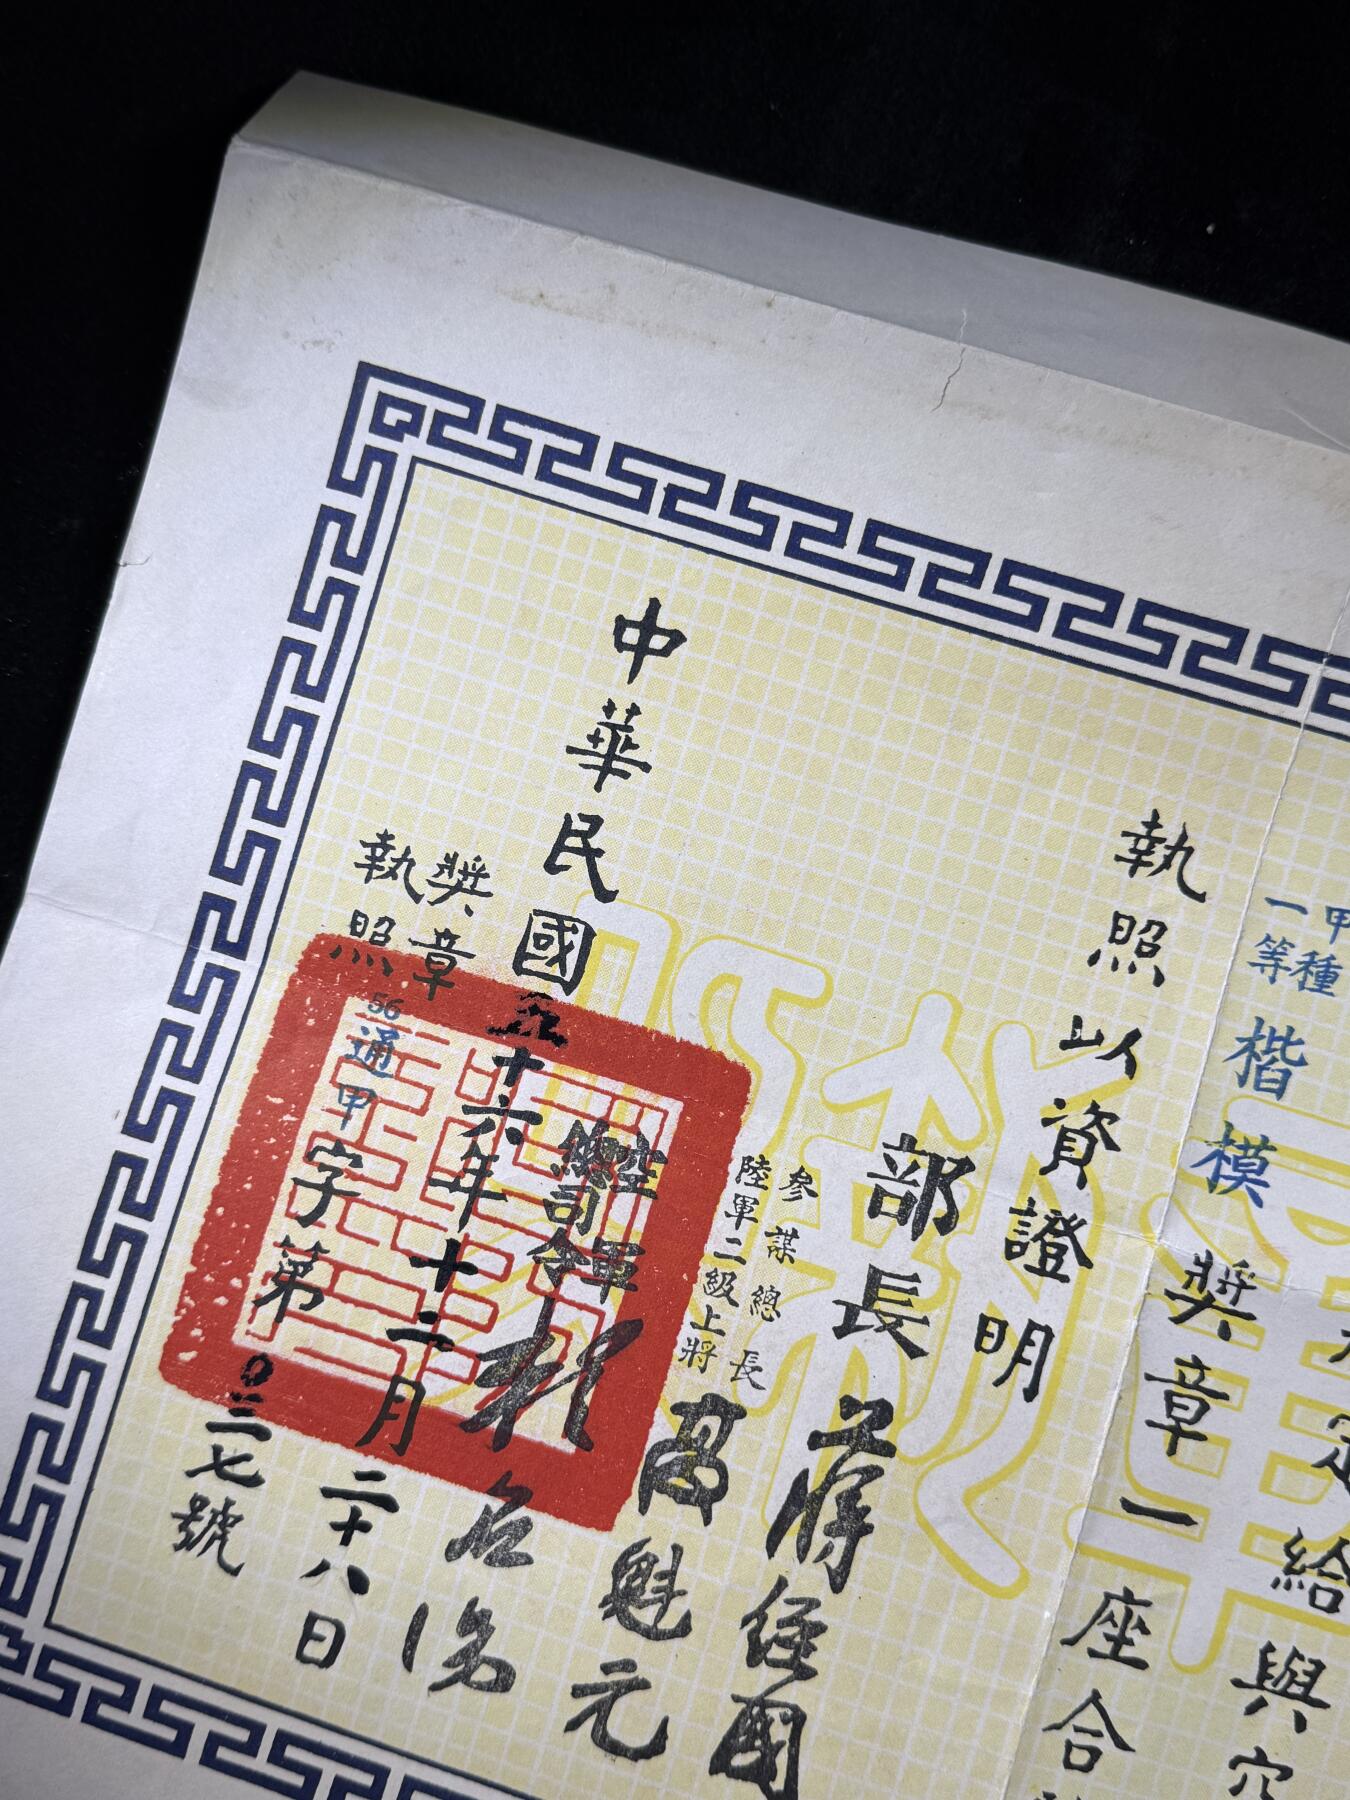 給與空
甲種
一等
楷模
獎章一座合
執照以資證明
部長 蔣經國
參謀總長
陸軍二級上將 高魁元
陸軍
總司令
中華民國五十六年十二月二十八日
獎章
執照
56
通甲字第0三七號